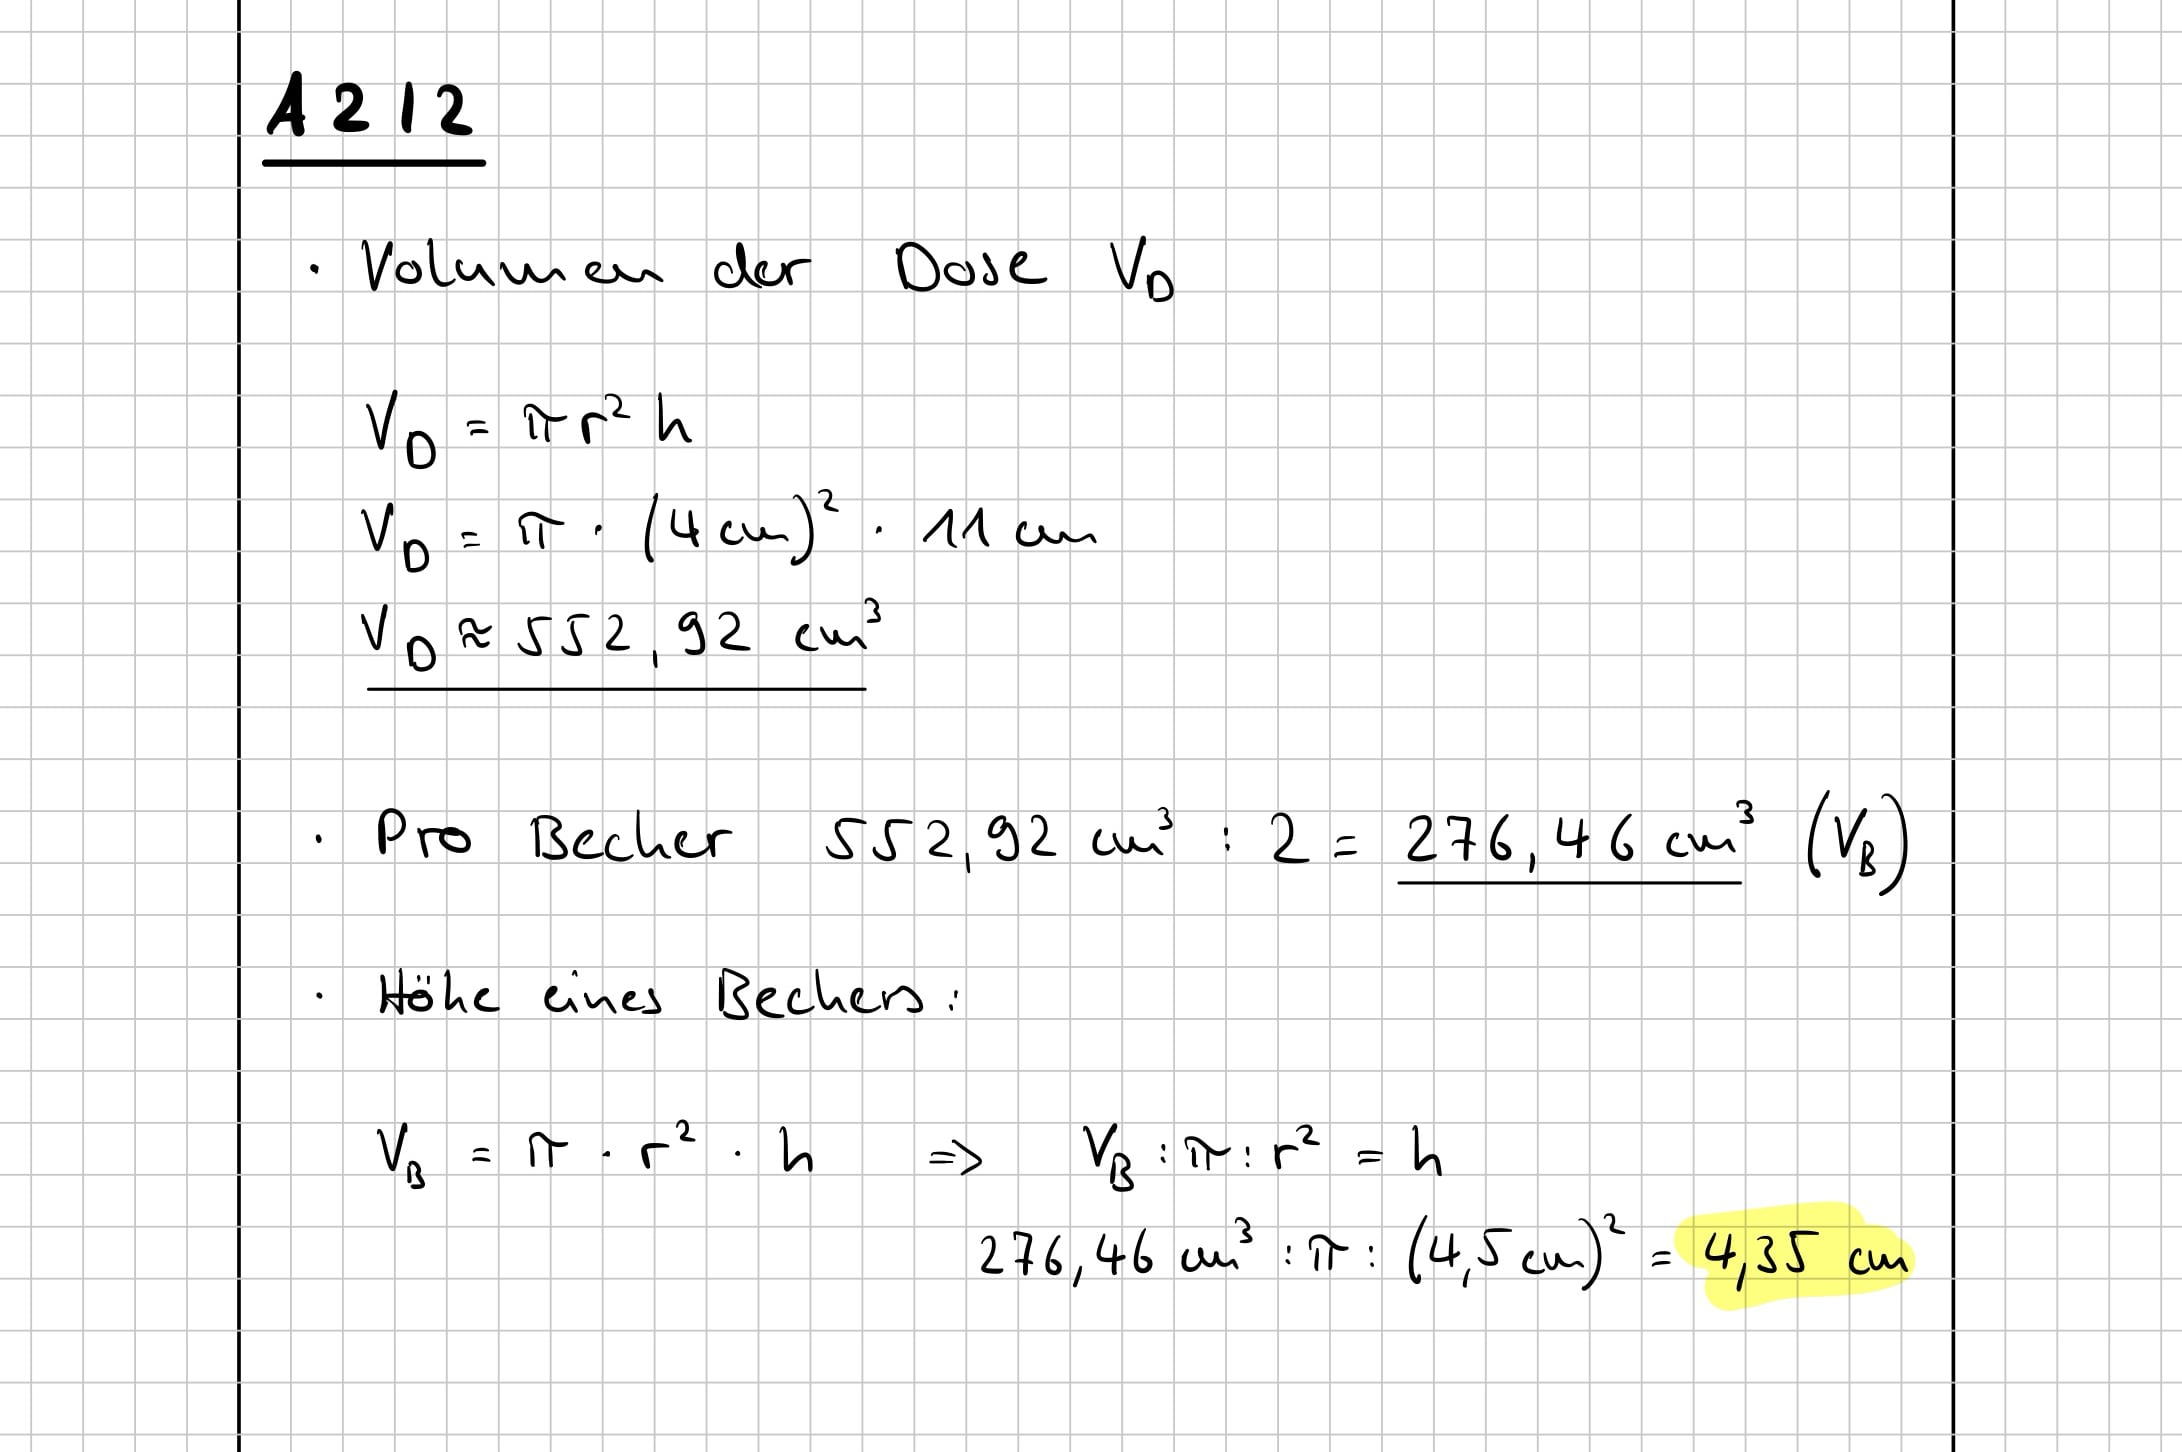 A212
· Volumen der Dose V_D
V_D = πr² h
V_D = π · (4 cm)² · 11 cm
V_D ≈ 552,92 cm³
· Pro Becher 552,92 cm³ : 2 = 276,46 cm³ (V_B)
· Höhe eines Bechers:
V_B = π · r² · h => V_B : π : r² = h
276,46 cm³ : π : (4,5 cm)² = 4,35 cm